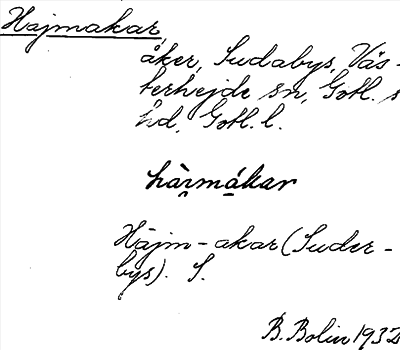 Hajmakar,
åker, Sudabys, Väs-
terhejde sn, Gotl. s
hd, Gotl. l.
hàrmákar
Hajm-akar (Suder-
bys). S.
B. Bolin 1932